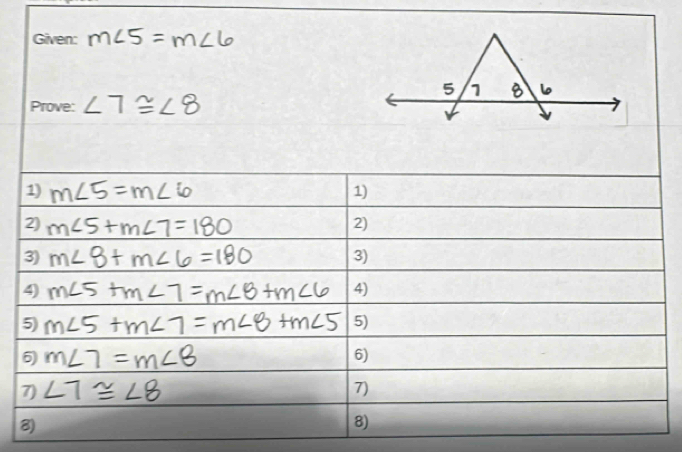 Given: m∠5 = m∠6
5 7 8 6
Prove: ∠7 ≅ ∠8
1) m∠5 = m∠6 1)
2) m∠5 + m∠7 = 180 2)
3) m∠8 + m∠6 = 180 3)
4) m∠5 + m∠7 = m∠8 + m∠6 4)
5) m∠5 + m∠7 = m∠8 + m∠5 5)
6) m∠7 = m∠8 6)
7) ∠7 ≅ ∠8 7)
8) 8)